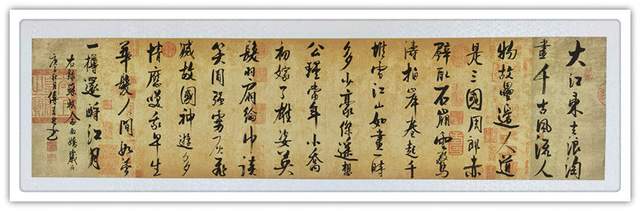 大江東去浪淘
盡千古風流人
物故壘邊人道
是三國周郎赤
壁乱石崩雲驚
涛拍岸卷起千
堆雪江山如畫一時
多少豪傑遥想
公瑾當年小喬
初嫁了雄姿英
發羽扇綸巾談
笑間强虜灰飛
滅故國神遊多
情應笑我早生
華髮人間如夢
一樽還酹江月
右錄蘇軾念奴嬌